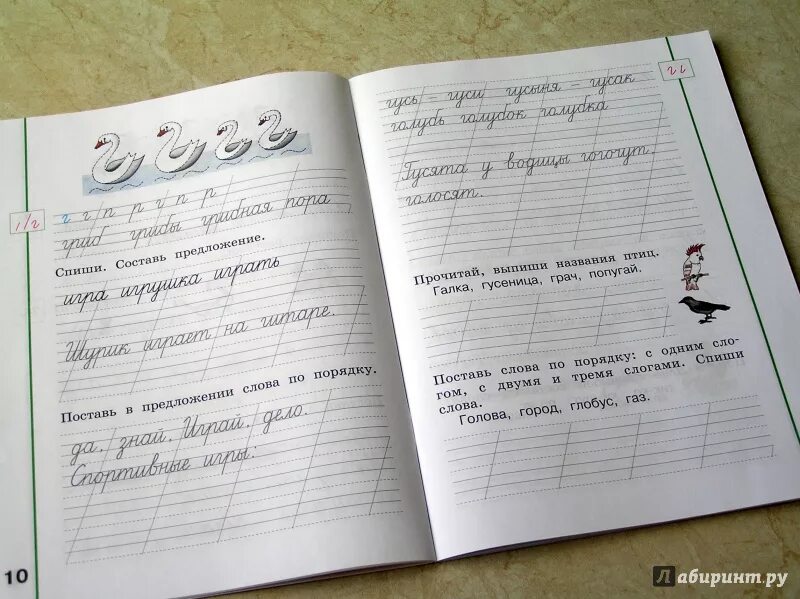 г г п р г п р
гриб грибы грибная пора
Спиши. Составь предложение.
игра игрушка играть
Шурик играет на гитаре.
Поставь в предложении слова по порядку.
да, знай, Играй, дело.
Спортивные игры:
10
гусь – гуси гусыня – гусак
голубь голубок голубка
Гусята у водицы гогочут,
голосят.
Прочитай, выпиши названия птиц.
Галка, гусеница, грач, попугай.
Поставь слова по порядку: с одним сло-
гом, с двумя и тремя слогами. Спиши
слова.
Голова, город, глобус, газ.
Лабиринт.ру